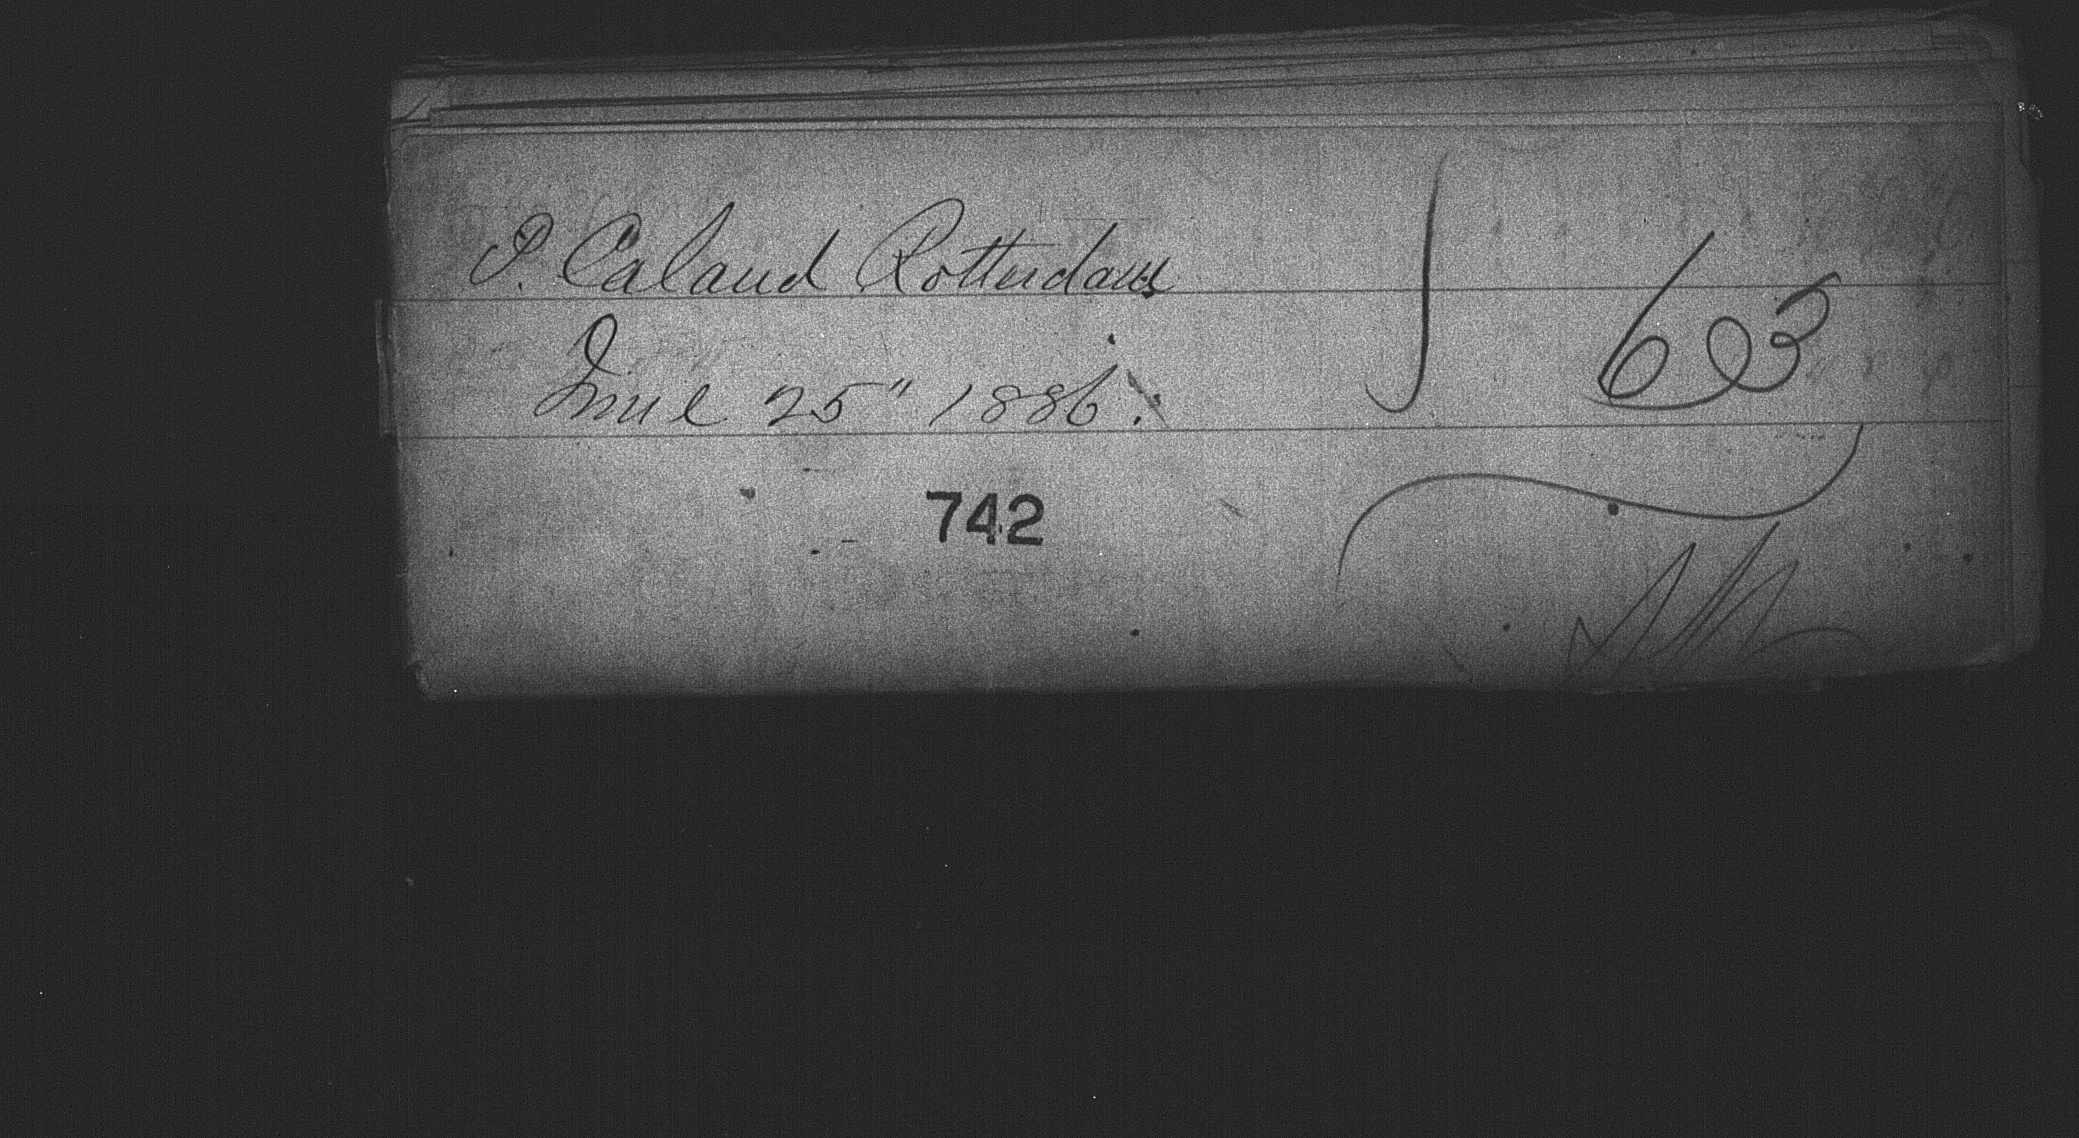 P. Caland Rotterdam
June 25" 1886.
603
742